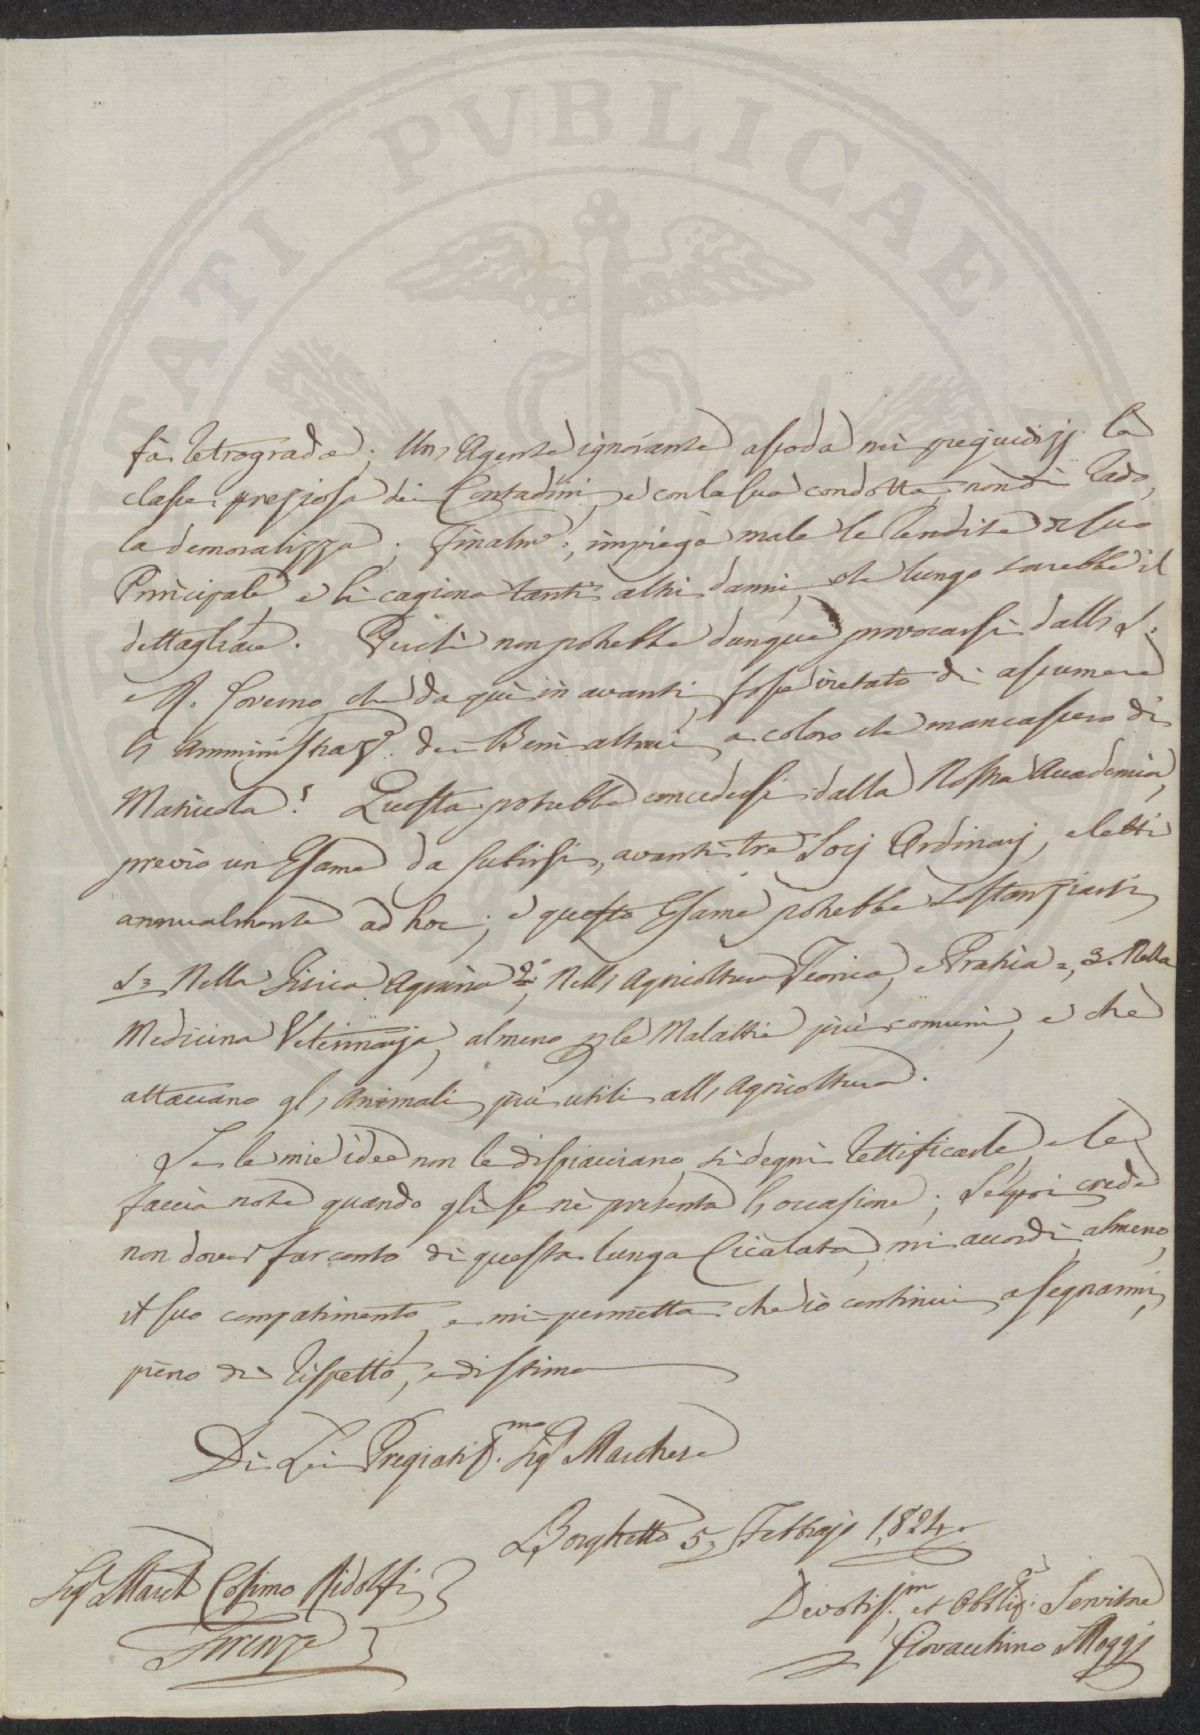 PROSPERITATI PVBLICAE
fà retrograda; Un'Agente ignorante assoda nei pregiudizj la
classe preziosa dei Contadini, e con la sua condotta, non di rado,
la demoralizza; Finalm.e, impiega male le Rendite del suo
Principale, e li cagiona tanti altri danni, che lungo sarebbe il
dettagliare. Perchè non potrebbe dunque provocarsi dall'I.
e R. Governo, che da qui in avanti, fosse vietato di assumere
l'Amministraz.e dei Beni altrui, a coloro che mancassero di
Matricola? Questa potrebbe concedersi dalla Nostra Accademia,
previo un Esame da subirsi, avanti tre Socj Ordinarj, eletti
annualmente ad hoc; e questo Esame potrebbe sostanziarsi
1.o Nella Fisica Agraria, 2.o Nell'Agricoltura Teorica, e Pratica, 3. Nella
Medicina Veterinaria, almeno per le Malattie più comuni, e che
attaccano gl'Animali più utili all'Agricoltura.
Se le mie idee non le dispiacciano, si degni rettificarle, e le
faccia note quando gli se ne presenta l'occasione; Se poi crede
non dover far conto di questa lunga Cicalata, mi accordi, almeno,
il suo compatimento, e mi permetta che io continui a segnarmi,
pieno di rispetto, e di stima
Di Lei Pregiatiss.mo Sig.r Marchese
Borghetto 5. Febbrajo 1824.
Sig.r March. Cosimo Ridolfi
Firenze
Devotiss.mo et Obblig.o Servitore
Giovacchino Moggi